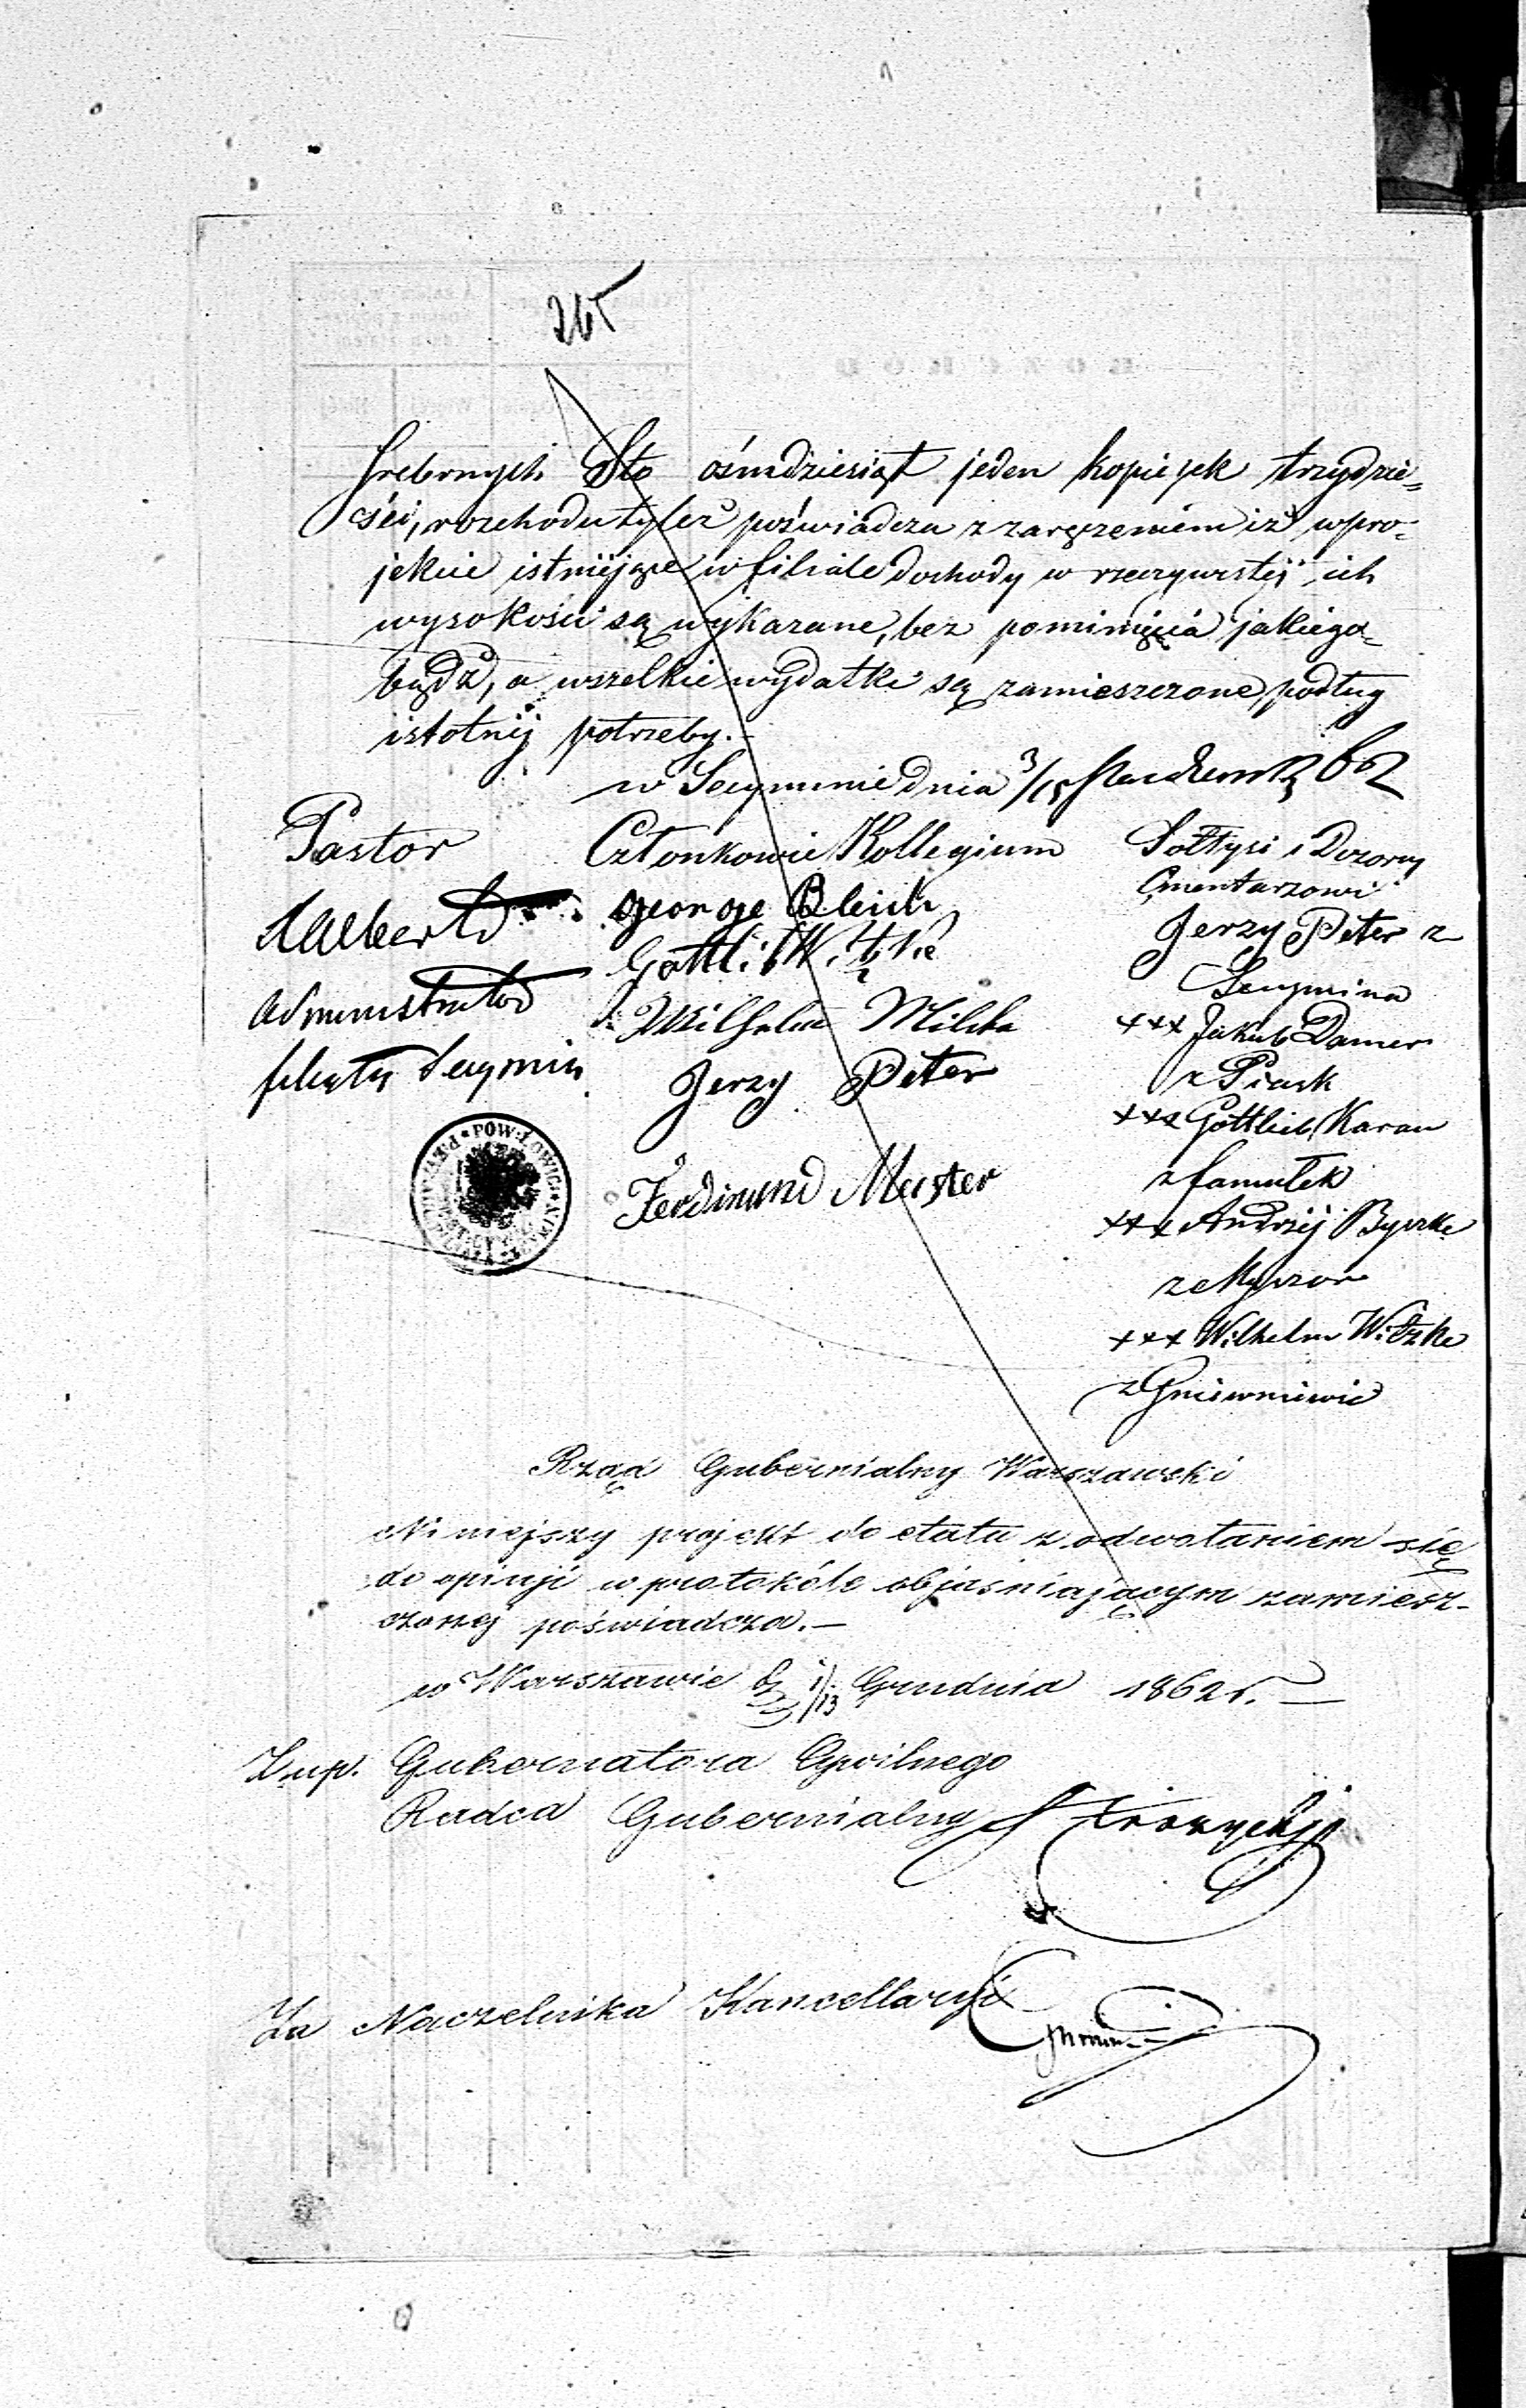 265
Srebrnych Sto ośmdziesiąt jeden kopiejek trzydzie=
ści, rozchodu tyleż poświadcza z zaręczeniem iż w pro-
jekcie istniejące w filiale dochody w rzeczywistéj ich
wysokości są wykazane, bez pominięcia jakiego-
bądź, a wszelkie wydatki są zamieszczone, podług
istotnéj potrzeby.-
w Secyminie dnia 3/15 862
Pastor
Administrator
filiału Secymin
Członkowie Kollegium
George Bleich
Gottli
Wilhelm Milcke
Jerzy Peter
Ferdinund Meister
Sołtysi i Dozorcy
Cmentarzowi
Jerzy Peter z
Secymina
+++ Jakub Damer
z Piask
+++ Gottlieb Karau
z famułek
+++ Andrzéj
+++ Wilhelm Witzke
z Gniewniewic
POW: ŁOWIC
Rząd Gubernialny Warszawski
Niniejszy projekt do etatu z odwołaniem się
do opinji w protokóle objaśniającym zamiesz-
czonej poświadcza.-
w Warszawie d 1/13 Grudnia 1862 r.
Z up. Gubernatora Cywilnego
Radca Gubernialny
Za Naczelnika Kancellaryi